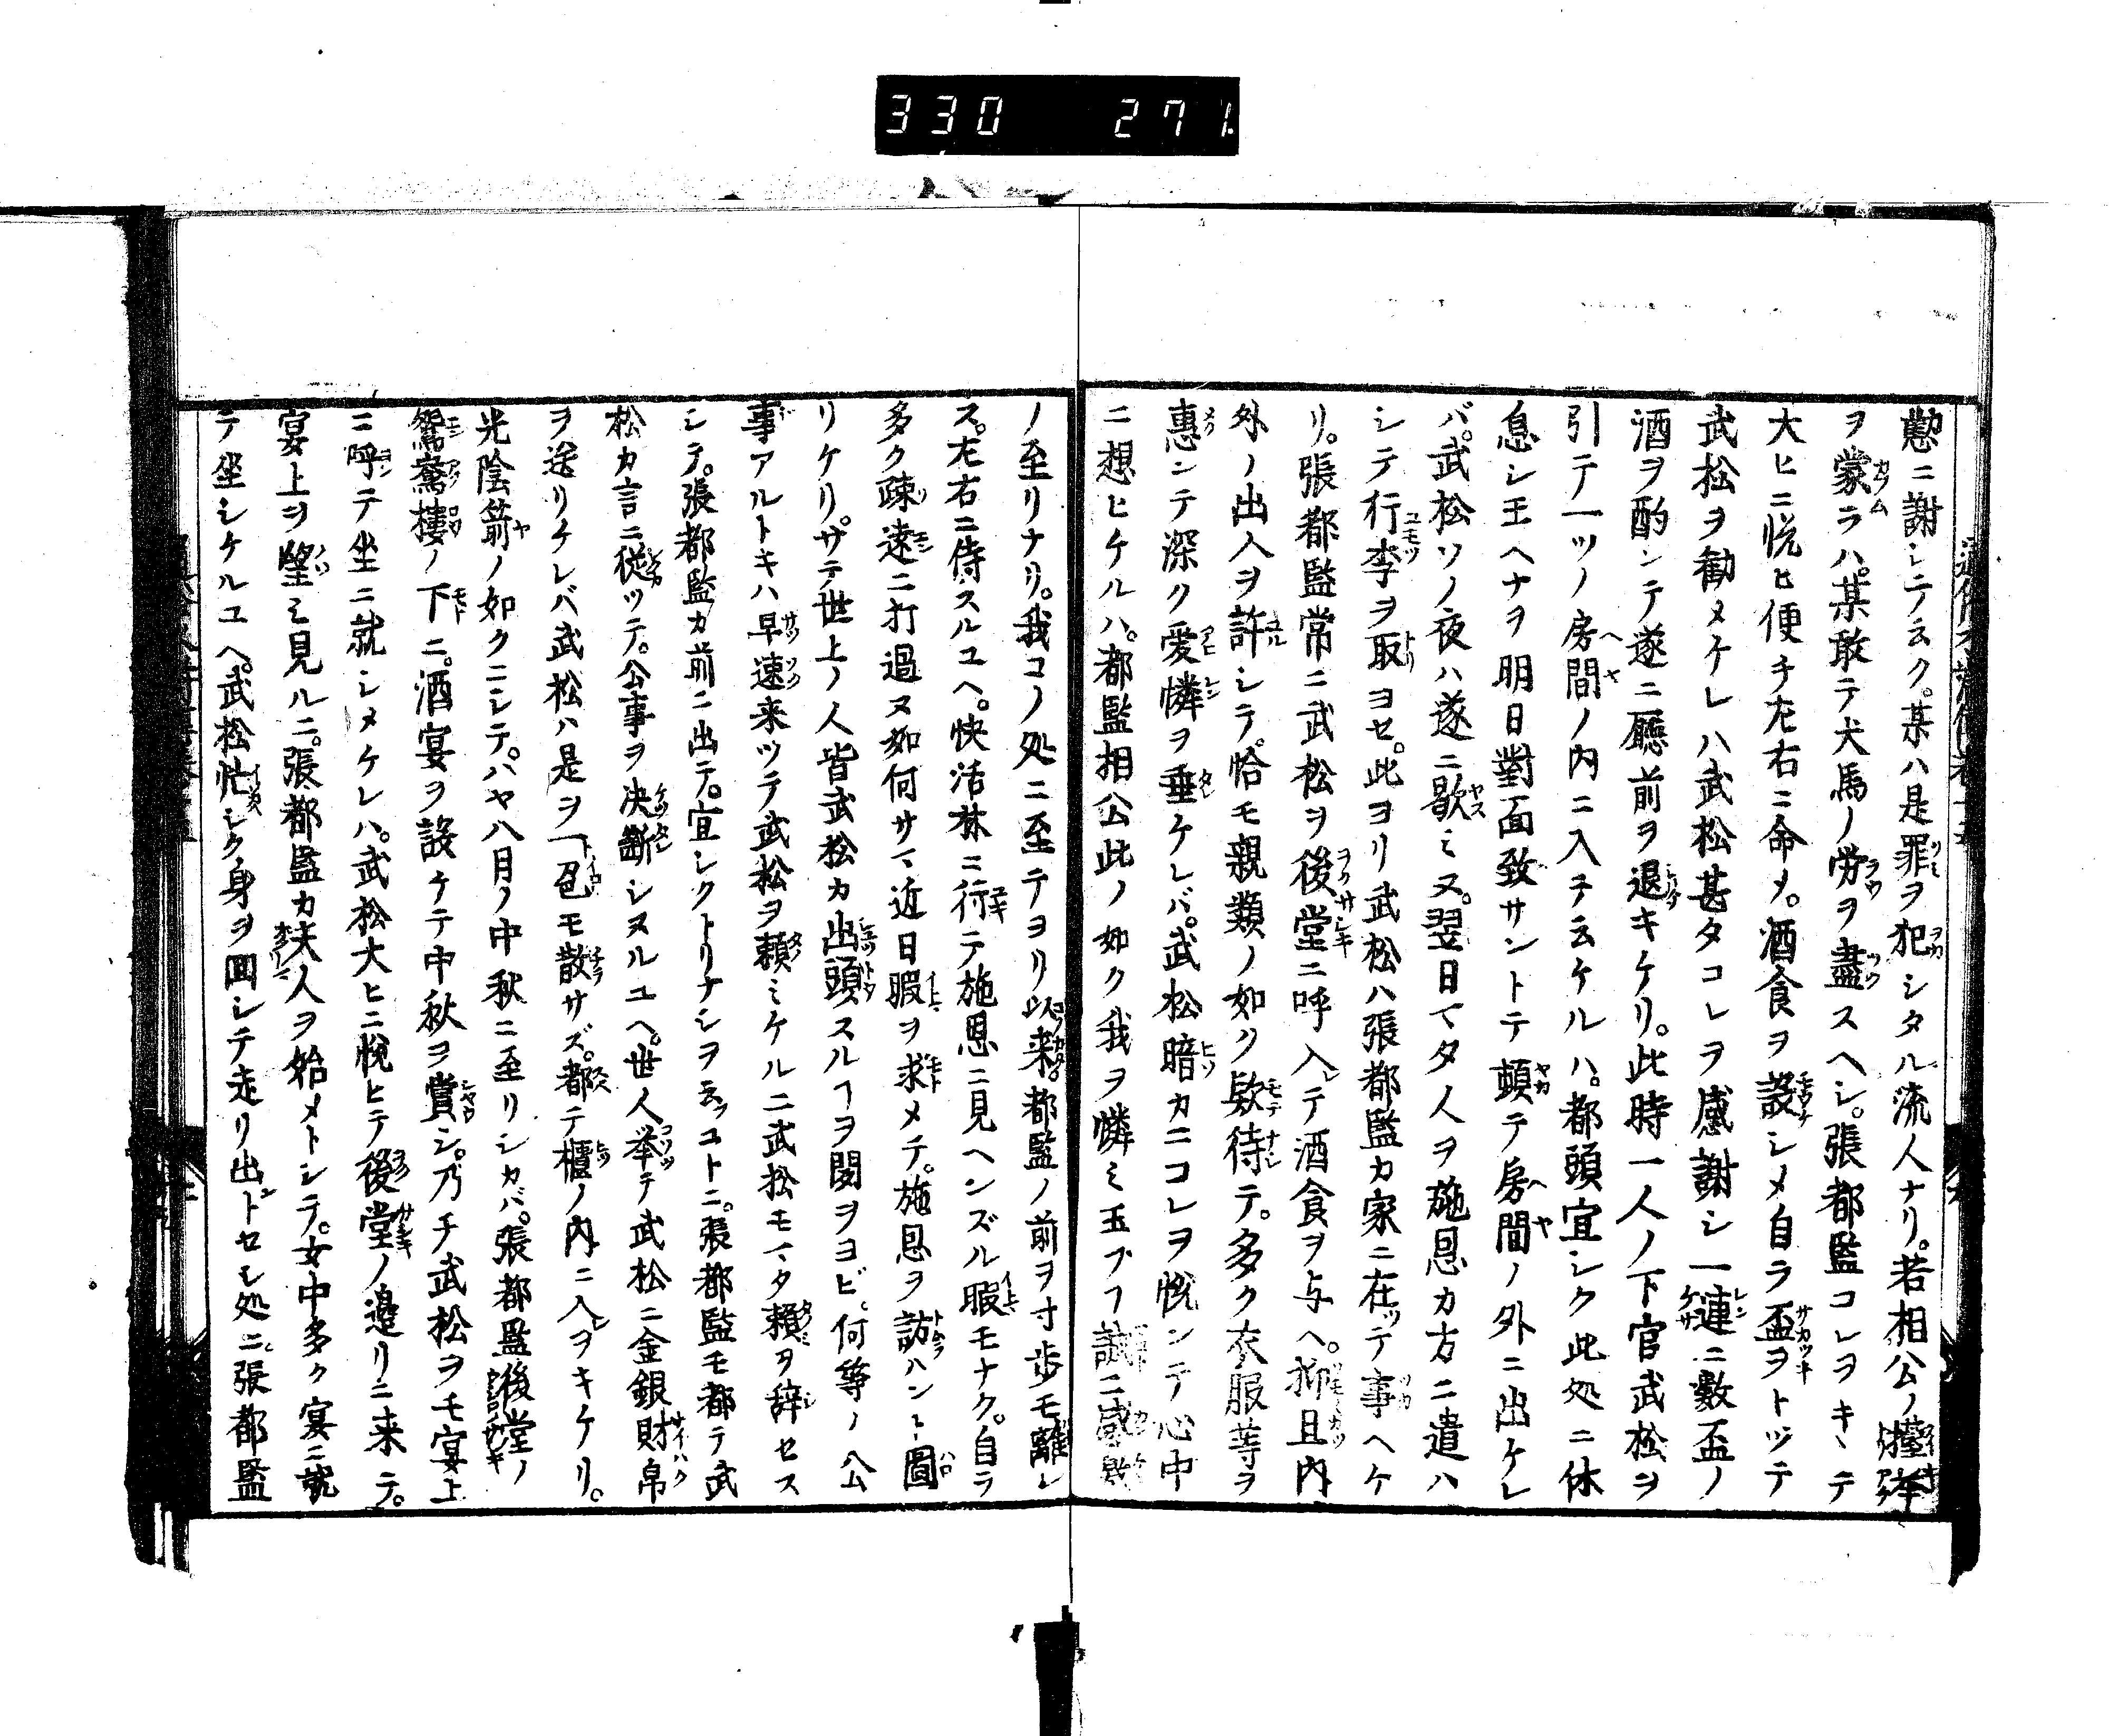 330 271
懃ニ謝シテ云ク。某ハ是罪ヲ犯シタル流人ナリ。若相公ノ擡挙
ヲ蒙ラハ。某敢テ犬馬ノ労ヲ盡スヘシ。張都監コレヲキヽテ
大ヒニ悦ヒ便チ左右ニ命メ。酒食ヲ設シメ自ラ盃ヲトツテ
武松ヲ勧メケレハ武松甚タコレヲ感謝シ一連ニ数盃ノ
酒ヲ酌ンテ遂ニ廳前ヲ退キケリ。此時一人ノ下官武松ヲ
引テ一ツノ房間ノ内ニ入チ云ケルハ。都頭宜シク此処ニ休
息シ王ヘナヲ明日對面致サントテ頓テ房間ノ外ニ出ケレ
バ。武松ソノ夜ハ遂ニ歇ミヌ。翌日マタ人ヲ施恩カ方ニ遣ハ
シテ行李ヲ取ヨセ。此ヨリ武松ハ張都監カ家ニ在ッテ事ヘケ
リ。張都監常ニ武松ヲ後堂ニ呼入テ酒食ヲ与ヘ。抑且内
外ノ出入ヲ許シテ。恰モ親類ノ如ク欵待テ。多ク衣服等ヲ
惠ンテ深ク愛憐ヲ垂ケレバ。武松暗カニコレヲ悦ンテ心中
ニ想ヒケルハ。都監相公此ノ如ク我ヲ憐ミ玉フヿ誠ニ感
ノ至リナリ。我コノ処ニ至テヨリ以来。都監ノ前ヲ寸歩モ離レ
ス。左右ニ侍スルユヘ。快活林ニ行テ施恩ニ見ヘンズル暇モナク。自ラ
多ク疎遠ニ打過ヌ如何サマ近日暇ヲ求メテ。施恩ヲ訪ハント圖
リケリ。サテ世上ノ人皆武松カ出頭スルヿヲ聞ヲヨビ。何等ノ公
事アルトキハ早速来ツテ武松ヲ頼ミケルニ武松モマタ頼ヲ辞セス
シテ。張都監カ前ニ出テ。宜シクトリナシヲ云ッユトニ。張都監モ都テ武
松カ言ニ從ツテ。公事ヲ决斷シヌルユヘ。世人挙テ武松ニ金銀財帛
ヲ送リケレバ武松ハ是ヲ一色モ散サズ。都テ櫃ノ内ニ入ヲキケリ。
光陰箭ノ如クニシテ。ハヤ八月ノ中秋ニ至リシカバ。張都監後堂ノ
鴛鴦樓ノ下ニ。酒宴ヲ設ケテ中秋ヲ賞シ。乃チ武松ヲモ宴上
ニ呼テ坐ニ就シメケレハ。武松大ヒニ悦ヒテ後堂ノ邉リニ来テ。
宴上ヲ望ミ見ルニ。張都監カ夫人ヲ始メトシテ。女中多ク宴ニ就
テ坐シケルユヘ。武松忙シク身ヲ囬シテ走リ出ントセシ処ニ張都監